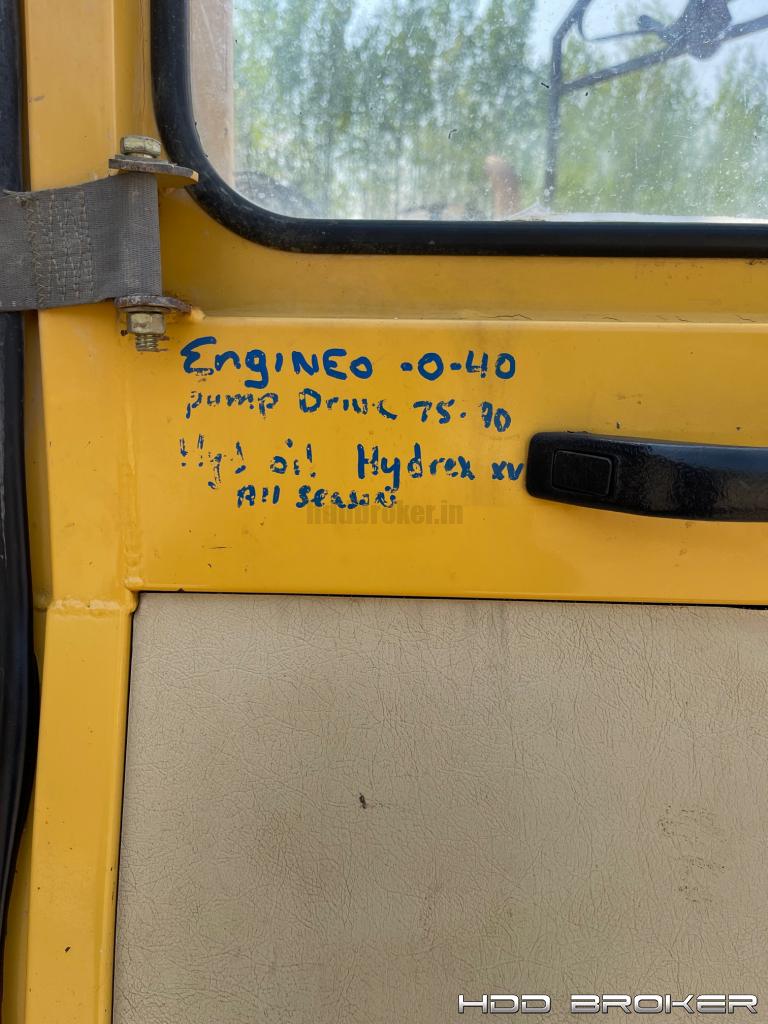 EngINEO -0-40
pump Drive 75-90
Hyd oil Hydrex xv
All Season
hddbroker.in
HDD BROKER